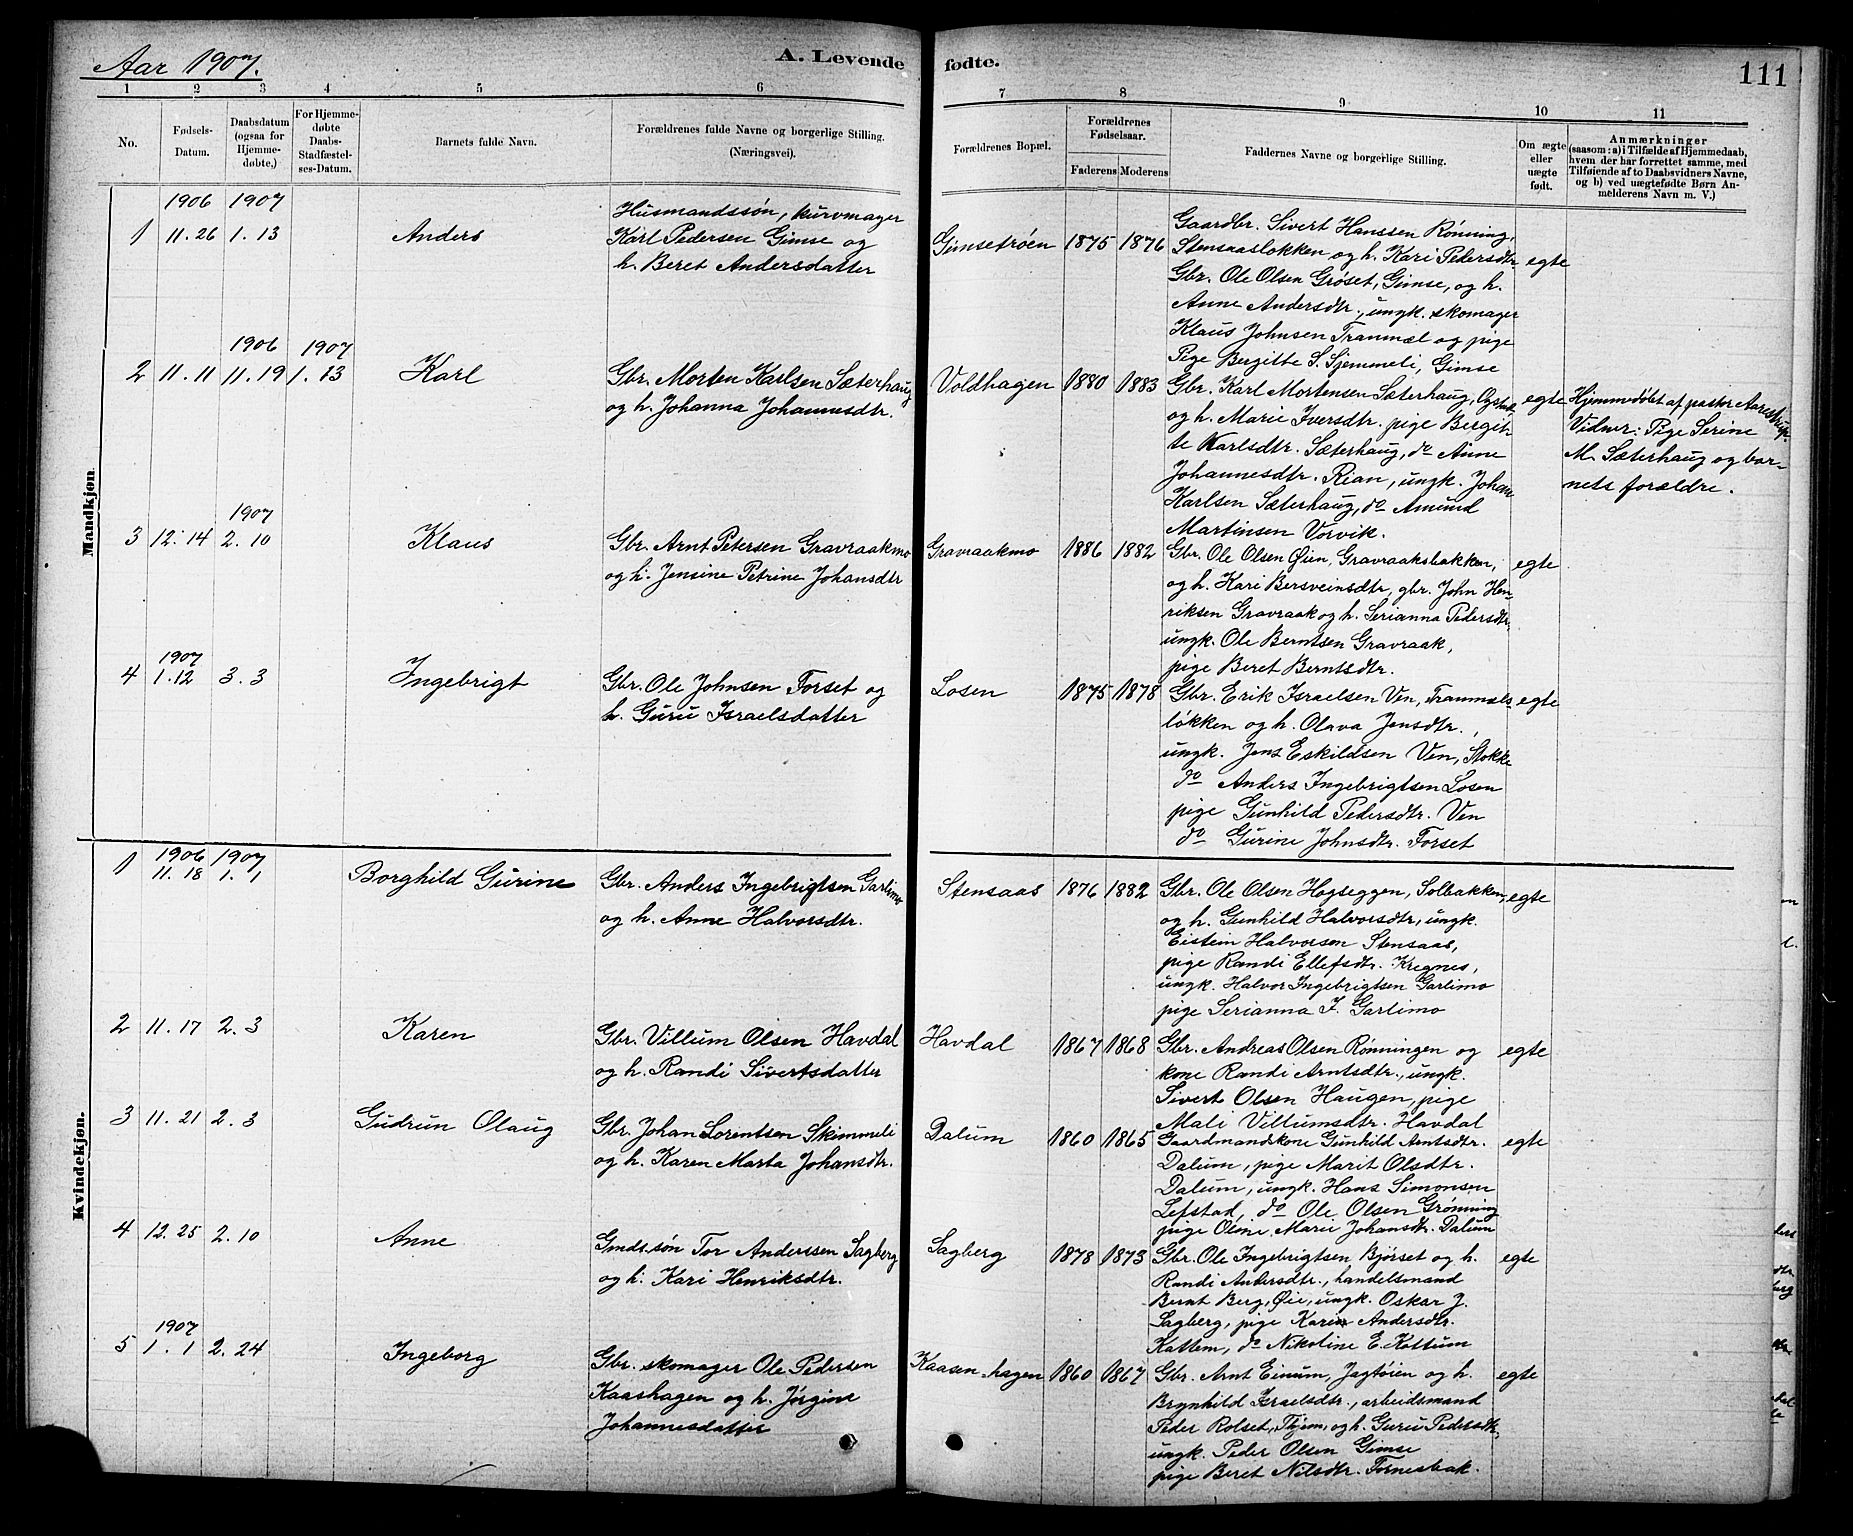 Aar 1907.
A. Levende fødte.
111
1 2 3 4 5 6 7 8 9 10 11
No.
Fødsels-
Datum.
Daabsdatum
(ogsaa for
Hjemme-
døbte,)
For Hjemme-
døbte
Daabs-
Stadfæstel-
ses-Datum.
Barnets fulde Navn.
Forældrenes fulde Navne og borgerlige Stilling.
(Næringsvei).
Forældrenes Bopæl.
Forældrenes
Fødselsaar.
Faderens Moderens
Faddernes Navne og borgerlige Stilling.
Om ægte
eller
uægte
født.
Anmærkninger
(saasom: a) i Tilfælde af Hjemmedaab,
hvem der har forrettet samme, med
Tilføiende af to Daabsvidners Navne,
og b) ved uægtefødte Børn An-
melderens Navn m. V.)
Mandkjøn
1906 1907
1 11.26 1.13 Anders
Husmandssøn, kurvmager
Karl Pedersen Gimse og
h. Beret Andersdatter
Gimsetrøen 1875 1876
Gaardbr. Sivert Hanssen Rønning,
Stensaasløkken og h. Kari Pedersdtr.
Gbr. Ole Olsen Grøset, Gimse, og h.
Anne Andersdtr., ungk. skomager
Klaus Johnsen Tranmæl og pige
Pige Bergitte S. Sjemmeli, Gimse
egte
1906 1907
2 11.11 11.19 1.13 Karl
Gbr. Morten Karlsen Sæterhaug
og h. Johanna Johannesdtr.
Voldhagen 1880 1883
Gbr. Karl Mortensen Sæterhaug, Ogstad,
og h. Marie Iversdtr. pige Bergit-
te Karlsdtr. Sæterhaug, do Anne
Johannesdtr. Rian, ungk. Johan
Karlsen Sæterhaug, do Amund
Martinsen Vorvik.
egte
Hjemmedøbt af pastor Aarestrup.
Vidner: Pige Serine
M. Sæterhaug og bar-
nets forældre.
1907
3 12.14 2.10 Klaus
Gbr. Arnt Petersen Gravraakmo
og h. Jensine Petrine Johansdtr
Gravraakmo 1886 1882
Gbr. Ole Olsen Øien, Gravraaksbakken,
og h. Kari Bersveinsdtr, gbr. John Hen-
riksen Gravraak og h. Serianna Pedersdtr.
ungk. Ole Berntsen Gravraak,
pige Beret Berntsdtr.
egte
1907
4 1.12 3.3 Ingebrigt
Gbr. Ole Johnsen Forset og
h. Guru Israelsdatter
Losen 1875 1878
Gbr. Erik Israelsen Ven, Tranmæls-
løkken og h. Olava Jensdtr.,
ungk. Jens Eskildsen Ven, Stokke
do Anders Ingebrigtsen Losen
pige Gunhild Pedersdtr. Ven
do Gurine Johnsdtr. Forset
egte
Kvindekjøn.
1906 1907
1 11.18 1.1 Borghild Gurine
Gbr. Anders Ingebrigtsen Garlimo
og h. Anne Halvorsdtr.
Stensaas 1876 1882
Gbr. Ole Olsen Hogseggen, Solbakken,
og h. Gunhild Halvorsdtr, ungk.
Eistein Halvorsen Stensaas,
pige Randi Ellefsdtr. Kregnes,
ungk. Halvor Ingebrigtsen Garlimo
pige Serianna I. Garlimo
egte
2 11.17 2.3 Karen
Gbr. Villum Olsen Havdal
og h. Randi Sivertsdatter
Havdal 1867 1868
Gbr. Andreas Olsen Rønningen og
kone Randi Arntsdtr., ungk.
Sivert Olsen Haugen, pige
Mali Villumsdtr. Havdal
egte
3 11.21 2.3 Gudrun Olaug
Gbr. Johan Lorentsen Skimmeli
og h. Karen Marta Johansdtr.
Dalum 1860 1865
Gaardmandskone Gunhild Arntsdtr.
Dalum, pige Marit Olsdtr.
Dalum, ungk. Hans Simonsen
Lefstad, do Ole Olsen Grønning
pige Oline Marie Johansdtr. Dalum
egte
4 12.25 2.10 Anne
Gmds.søn Tor Anderssen Sagberg
og h. Kari Henriksdtr.
Sagberg 1878 1873
Gbr. Ole Ingebrigtsen Bjørset og h.
Randi Andersdtr., handelsmand
Bernt Berg, Øie, ungk. Oskar J.
Sagberg, pige Karin Andersdtr.
Kattem, do Nikoline E. Kattum
egte
1907
5 1.1 2.24 Ingeborg
Gbr. skomager Ole Pedersen
Kaashagen og h. Jørgine
Johannesdatter
Kaasen-hagen 1860 1867
Gbr. Arnt Einum, Jagtøien og h.
Brynhild Israelsdtr., arbeidsmand
Peder Rolset, Thjem, og h. Guru Pedersdtr.
ungk. Peder Olsen Gimse
pige Beret Nilsdtr. Tornesbak.
egte